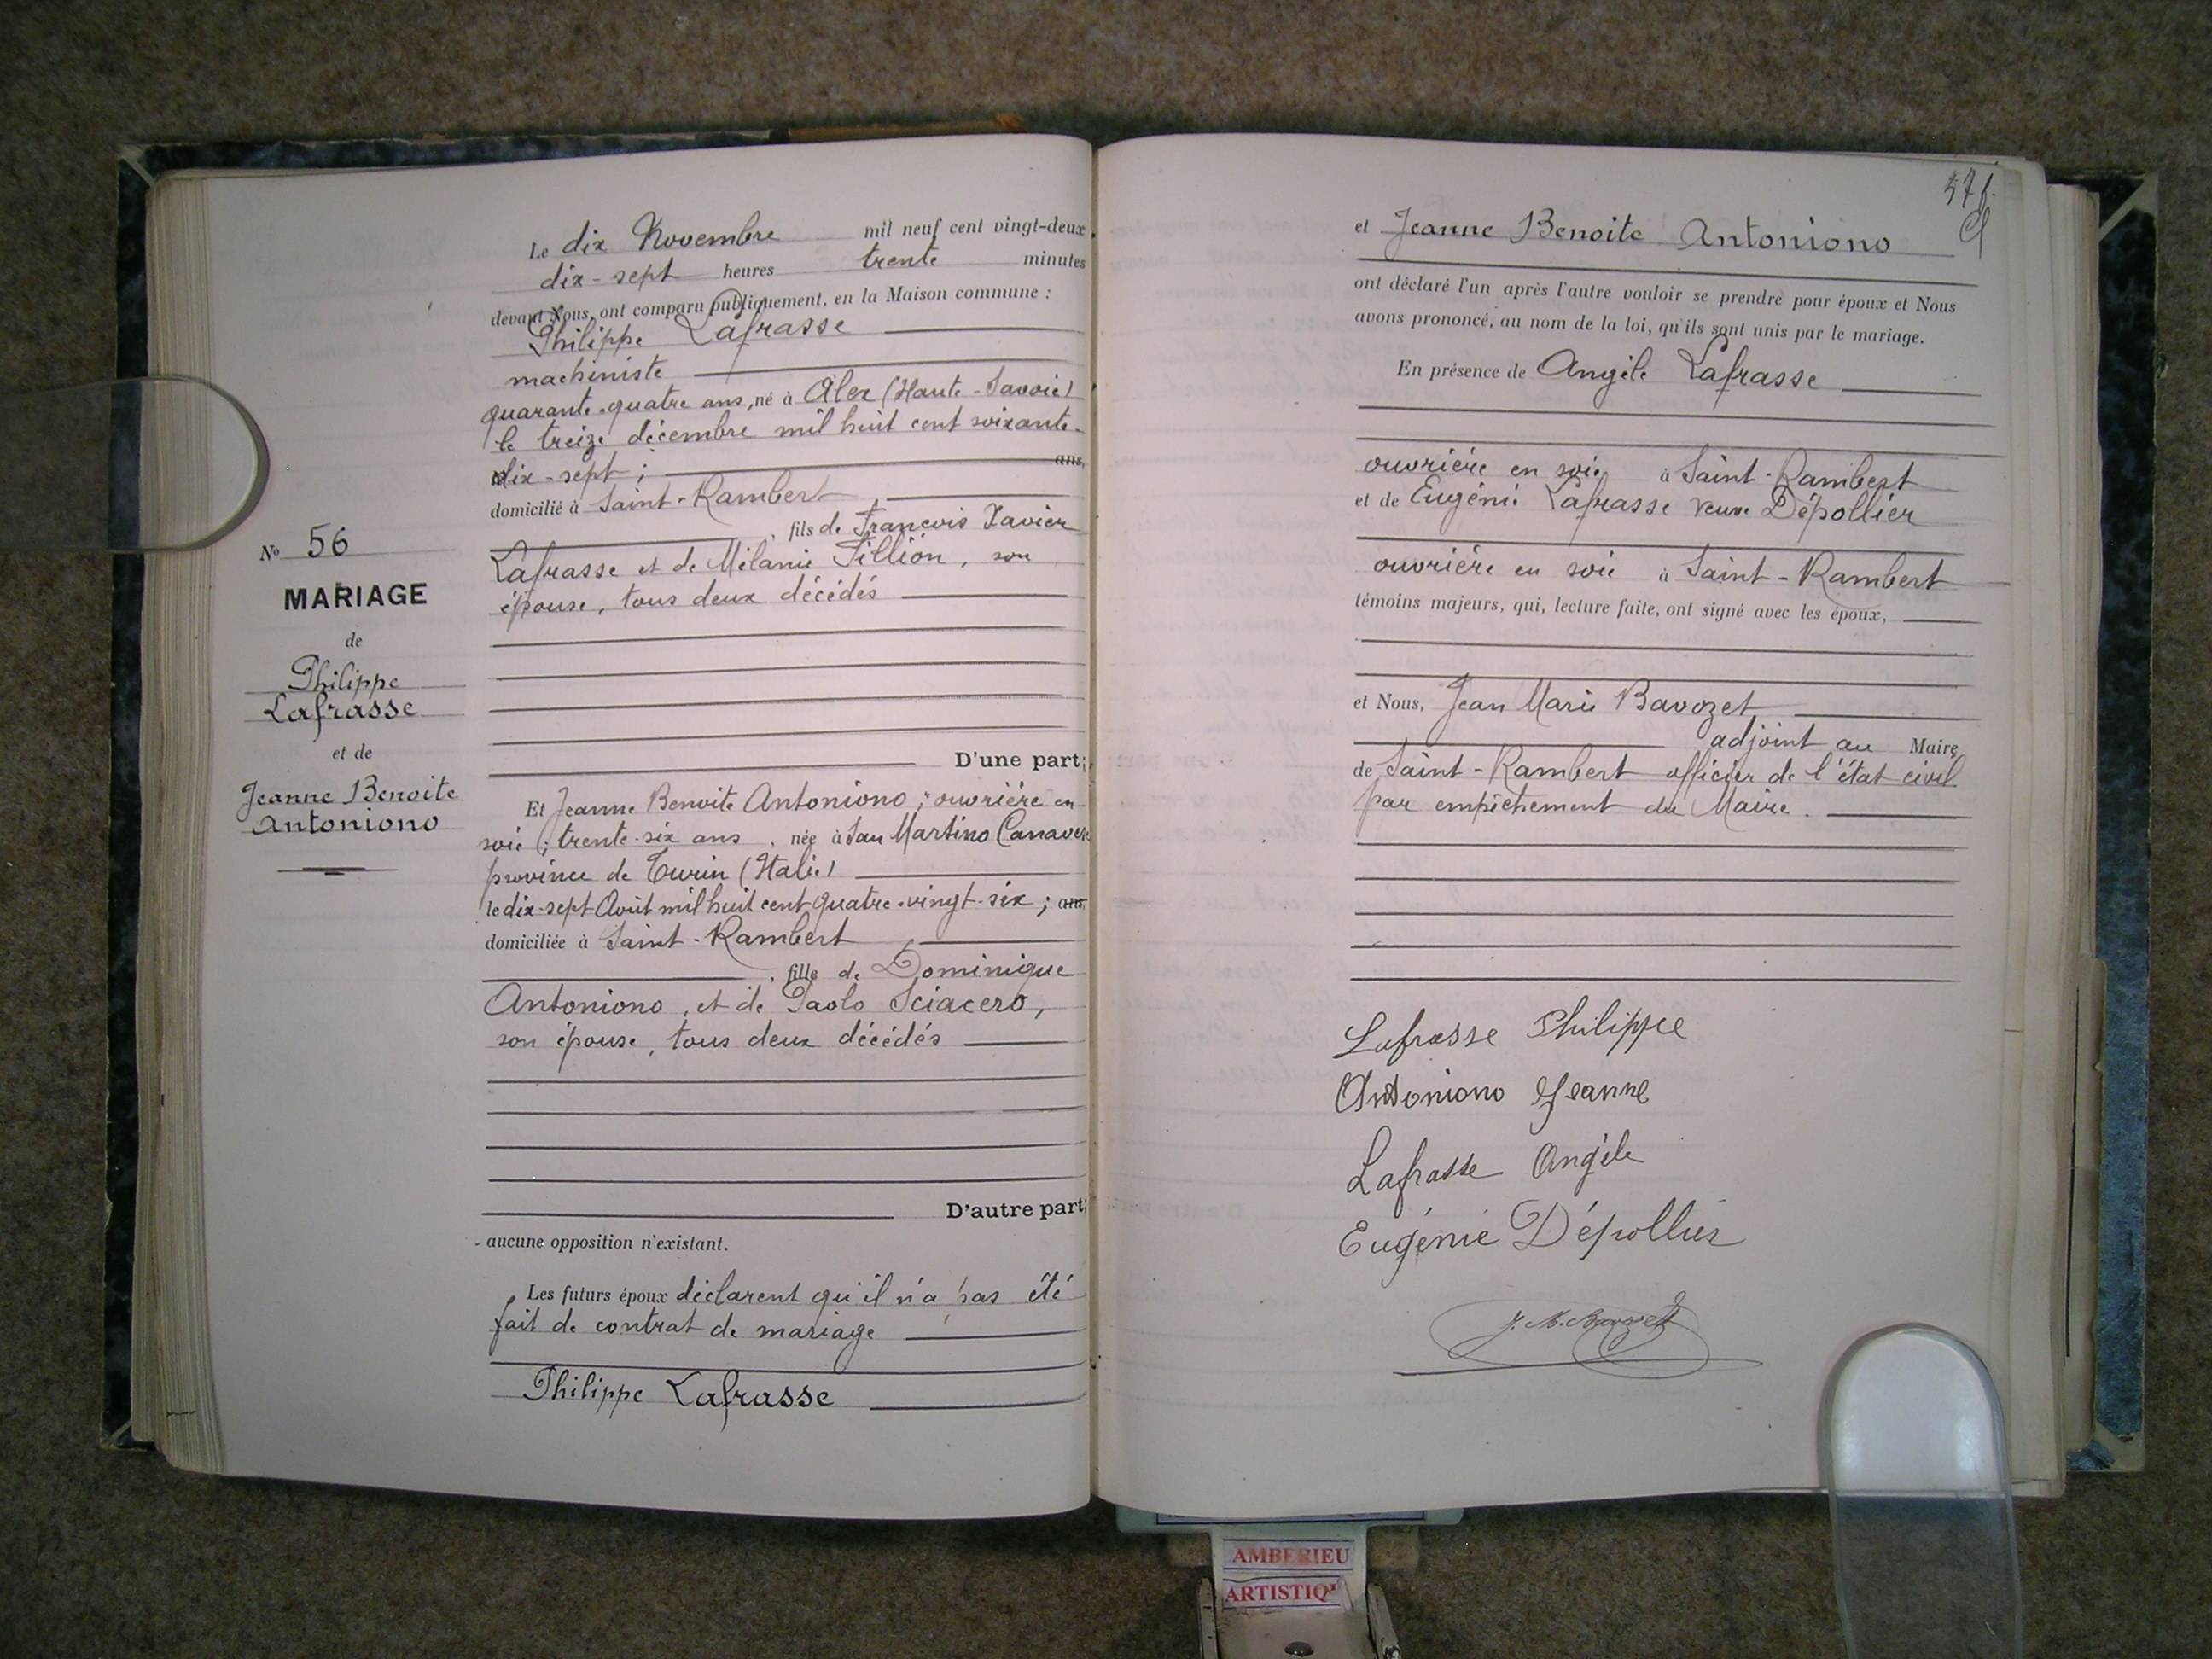 N° 56
MARIAGE
de
Philippe
Lafrasse
et de
Jeanne Benoite
Antoniono
Le dix Novembre mil neuf cent vingt-deux
dix-sept heures trente minutes
devant Nous, ont comparu publiquement, en la Maison commune :
Philippe Lafrasse
machiniste
quarante-quatre ans, né à Alex (Haute-Savoie)
le treize décembre mil huit cent soixante-
dix-sept ; ans,
domicilié à Saint-Rambert,
, fils de François Xavier
Lafrasse et de Mélanie Fillion, son
épouse, tous deux décédés
D'une part;
Et Jeanne Benoite Antoniono ; ouvrière en
soie ; trente-six ans, née à San Martino Canavese
province de Turin (Italie)
le dix-sept Août mil huit cent quatre-vingt-six ; ans,
domiciliée à Saint-Rambert,
, fille de Dominique
Antoniono, et de Paolo Sciacero,
son épouse, tous deux décédés
D'autre part;
- aucune opposition n'existant.
Les futurs époux déclarent qu'il n'a pas été
fait de contrat de mariage
Philippe Lafrasse
57 f.
et Jeanne Benoite Antoniono
ont déclaré l'un après l'autre vouloir se prendre pour époux et Nous
avons prononcé, au nom de la loi, qu'ils sont unis par le mariage.
En présence de Angèle Lafrasse
ouvrière en soie à Saint-Rambert
et de Eugénie Lafrasse veuve Dépollier
ouvrière en soie à Saint-Rambert
témoins majeurs, qui, lecture faite, ont signé avec les époux,
et Nous, Jean Marie Bavozet
adjoint au Maire
de Saint-Rambert officier de l'état civil
par empêchement du Maire.
Lafrasse Philippe
Antoniono Jeanne
Lafrasse Angèle
Eugénie Dépollier
J. M. Bavozet
AMBERIEU
ARTISTIQ